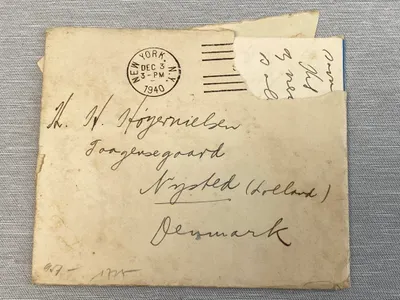 NEW YORK, N.Y.
DEC 3
3-PM
1940
H. H. Høyernielsen
Taagensegaard
Nysted (Lolland)
Denmark